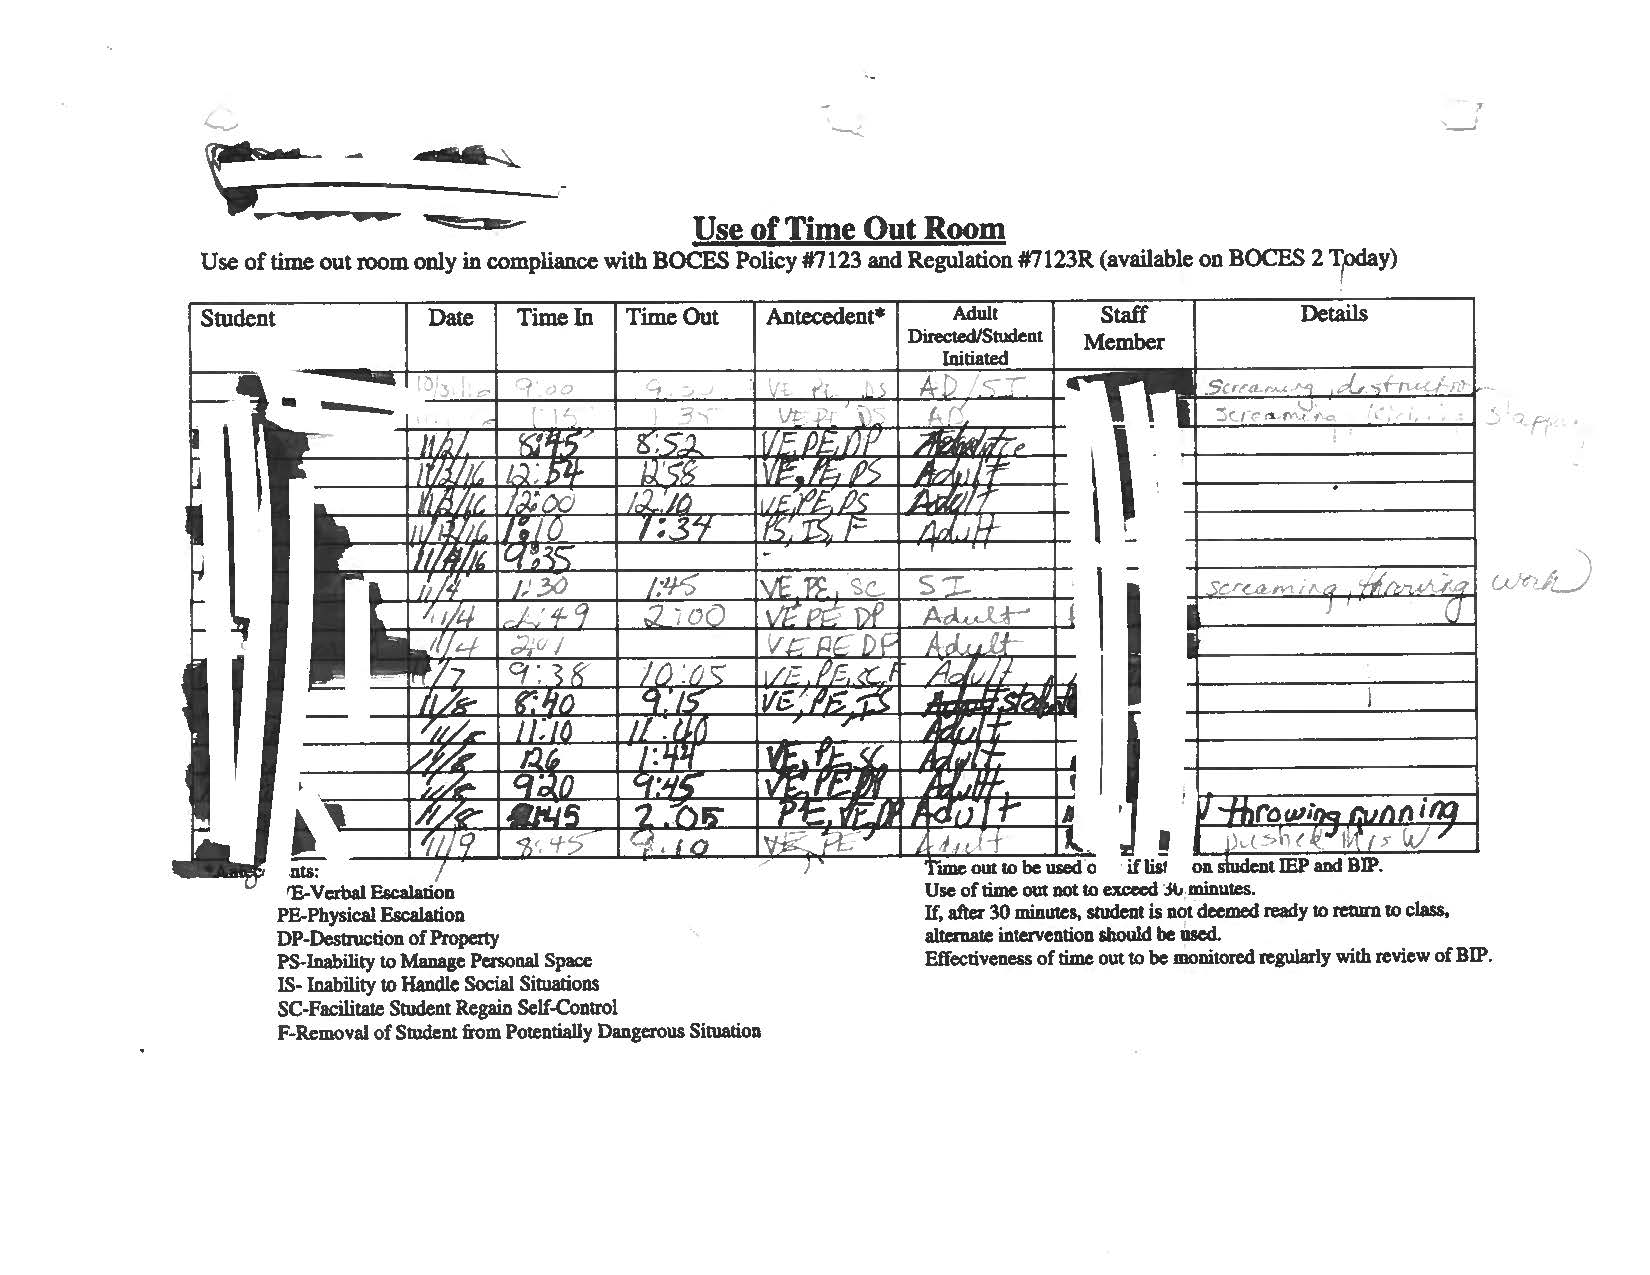 Use of Time Out Room
Use of time out room only in compliance with BOCES Policy #7123 and Regulation #7123R (available on BOCES 2 Today)
Student Date Time In Time Out Antecedent* Adult Directed/Student Initiated Staff Member Details
9:00 VE PE, AD/SI Screaming, destructio
1:15 1:35 VE PE DS AD Screaming,
8:45 8:52 VE, PE, DP
11/2/16 12:54 12:58 VE, PE, PS Adult
12:00 12:10 VE, PE, PS Adult
1:10 1:34 PS, IS, F Adult
9:35
11/4 1:30 1:45 VE, PE, SC SI screaming, throwing work
11/4 2:00 VE PE DP Adult
11/4 2:01 VE PE DP Adult
11/7 9:38 10:05 VE, PE, SC, F Adult
11/8 8:40 9:15 VE, PE, IS
11/8 11:10 11:40 Adult
11/8 1:44 VE, PE, SC Adult
11/8 9:20 9:45 VE, PE, Adult
11/8 2:05 PE, VE, DP Adult throwing running
11/9 8:45 9:10 VE, PE Adult pushed Mrs W
nts:
E-Verbal Escalation
PE-Physical Escalation
DP-Destruction of Property
PS-Inability to Manage Personal Space
IS- Inability to Handle Social Situations
SC-Facilitate Student Regain Self-Control
F-Removal of Student from Potentially Dangerous Situation
Time out to be used o if list on student IEP and BIP.
Use of time out not to exceed 30 minutes.
If, after 30 minutes, student is not deemed ready to return to class,
alternate intervention should be used.
Effectiveness of time out to be monitored regularly with review of BIP.